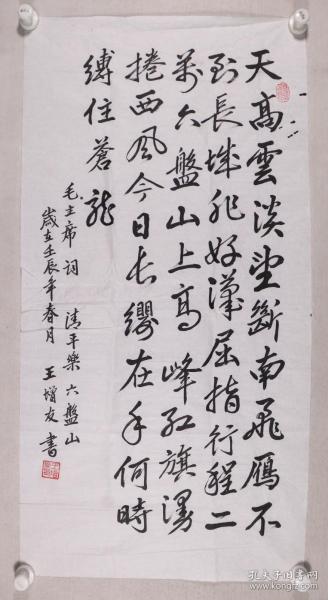 天高雲淡望斷南飛雁不
到長城非好漢屈指行程二
萬六盤山上高峰紅旗漫
捲西風今日長纓在手何時
縛住蒼龍
毛主席詞 清平樂 六盤山
歲在壬辰年春月 王增友書
孔夫子旧书网